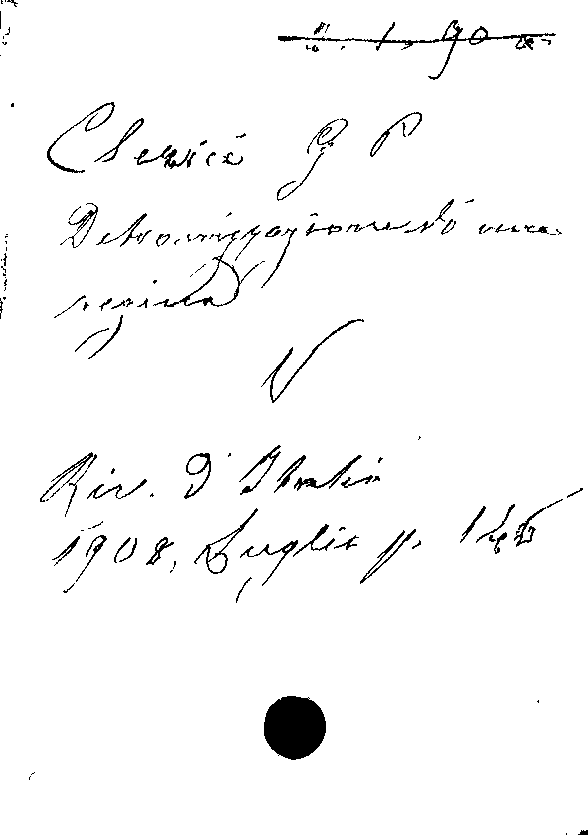 Clerici G P
Detronizzazione di una
regina
V
Riv. d'Italia
1908, Luglio p. 145